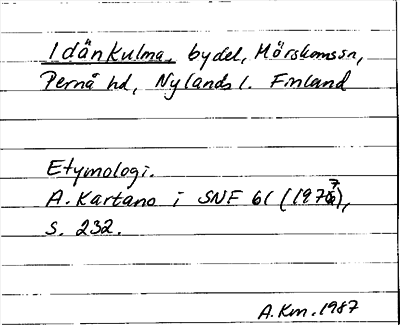 Idänkulma, bydel, Mörskomssn,
Pernå hd, Nylands l. Finland
Etymologi.
A. Kartano i SNF 61 (1977),
s. 232.
A.Km. 1987